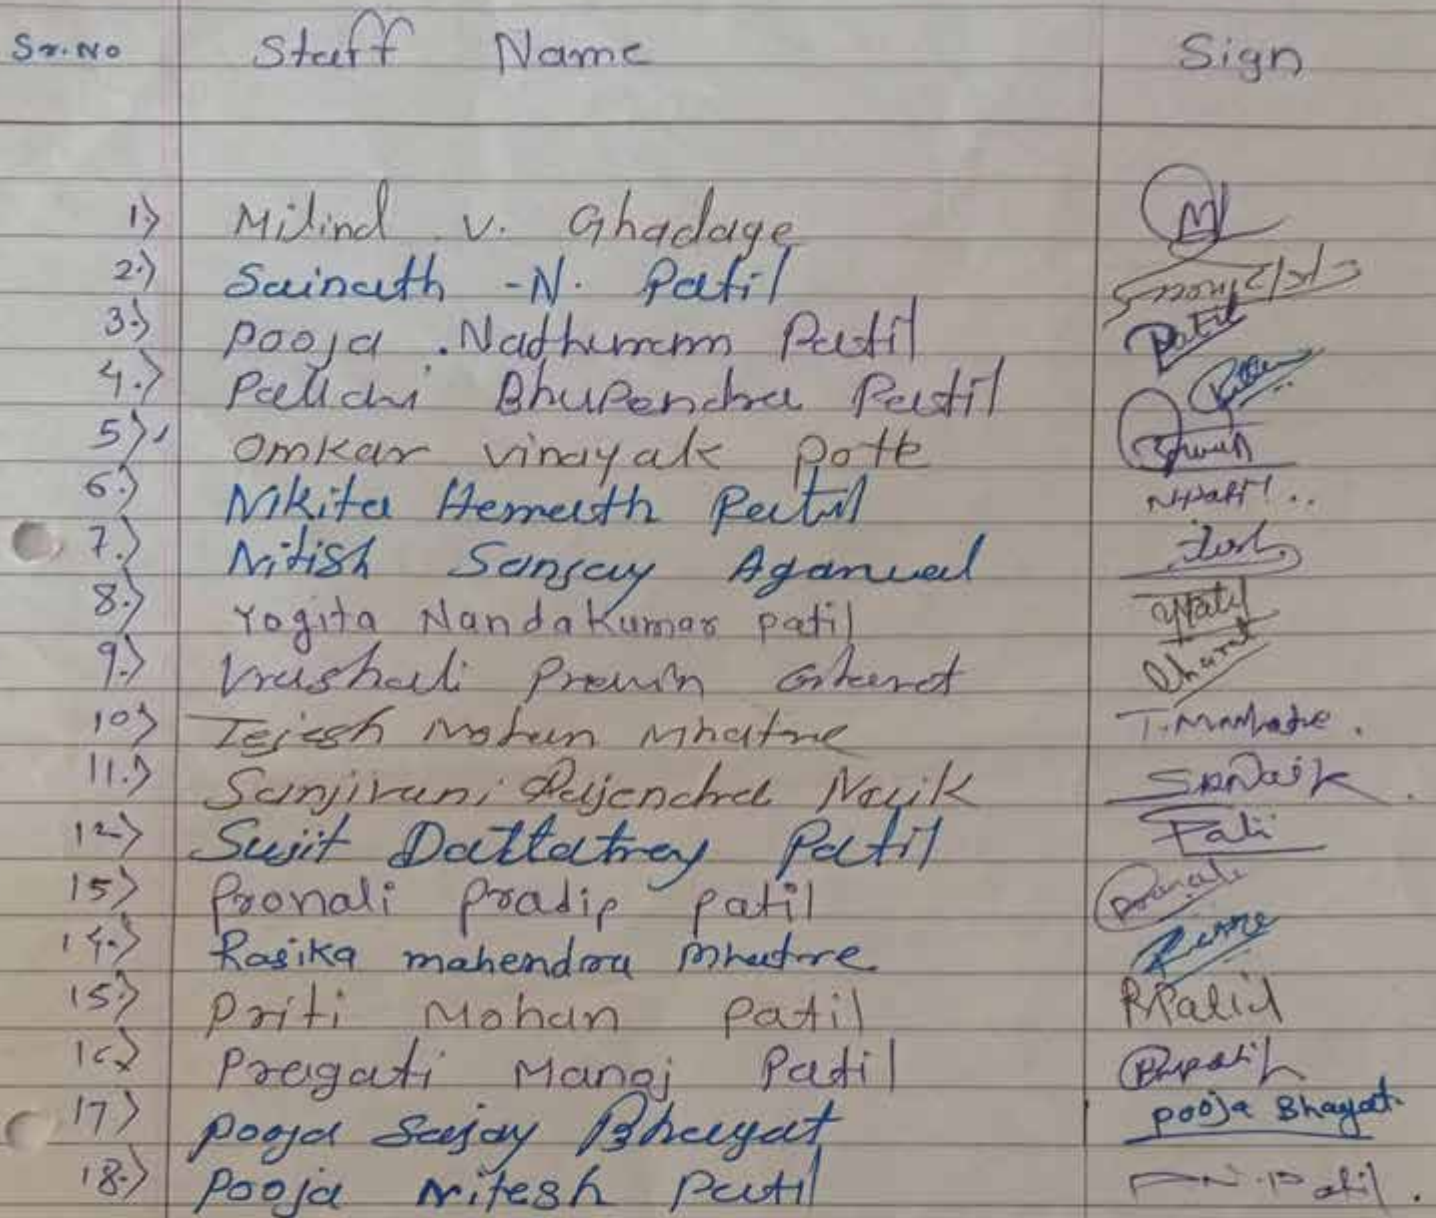 Sr.No Staff Name Sign
1) Milind v. Ghadage
2.) Sainath -N. Patil
3.) Pooja .Nathuram Patil Patil
4.) Pallavi Bhupendra Patil
5) Omkar vinayak pote
6.) Nikita Hemath Patil NHPatil..
7.) Nitish Sanjay Agarwal
8.) Yogita Nandakumar patil YPatil
9.) Vrushali Pravin Gharat Gharat
10) Tejesh Mohan Mhatre T.M.Mhatre.
11.) Sanjivani Rajendra Naik SRNaik.
12) Sujit Dattatrey Patil Patil
15) Pronali Pradip patil Pranali
14.) Rasika mahendra Mhatre
15.) Priti Mohan patil PPatil
16) Pragati Manoj Patil
17) pooja Sanjay Bhagat pooja Bhagat
18.) Pooja Nitesh Patil P.N.Patil.